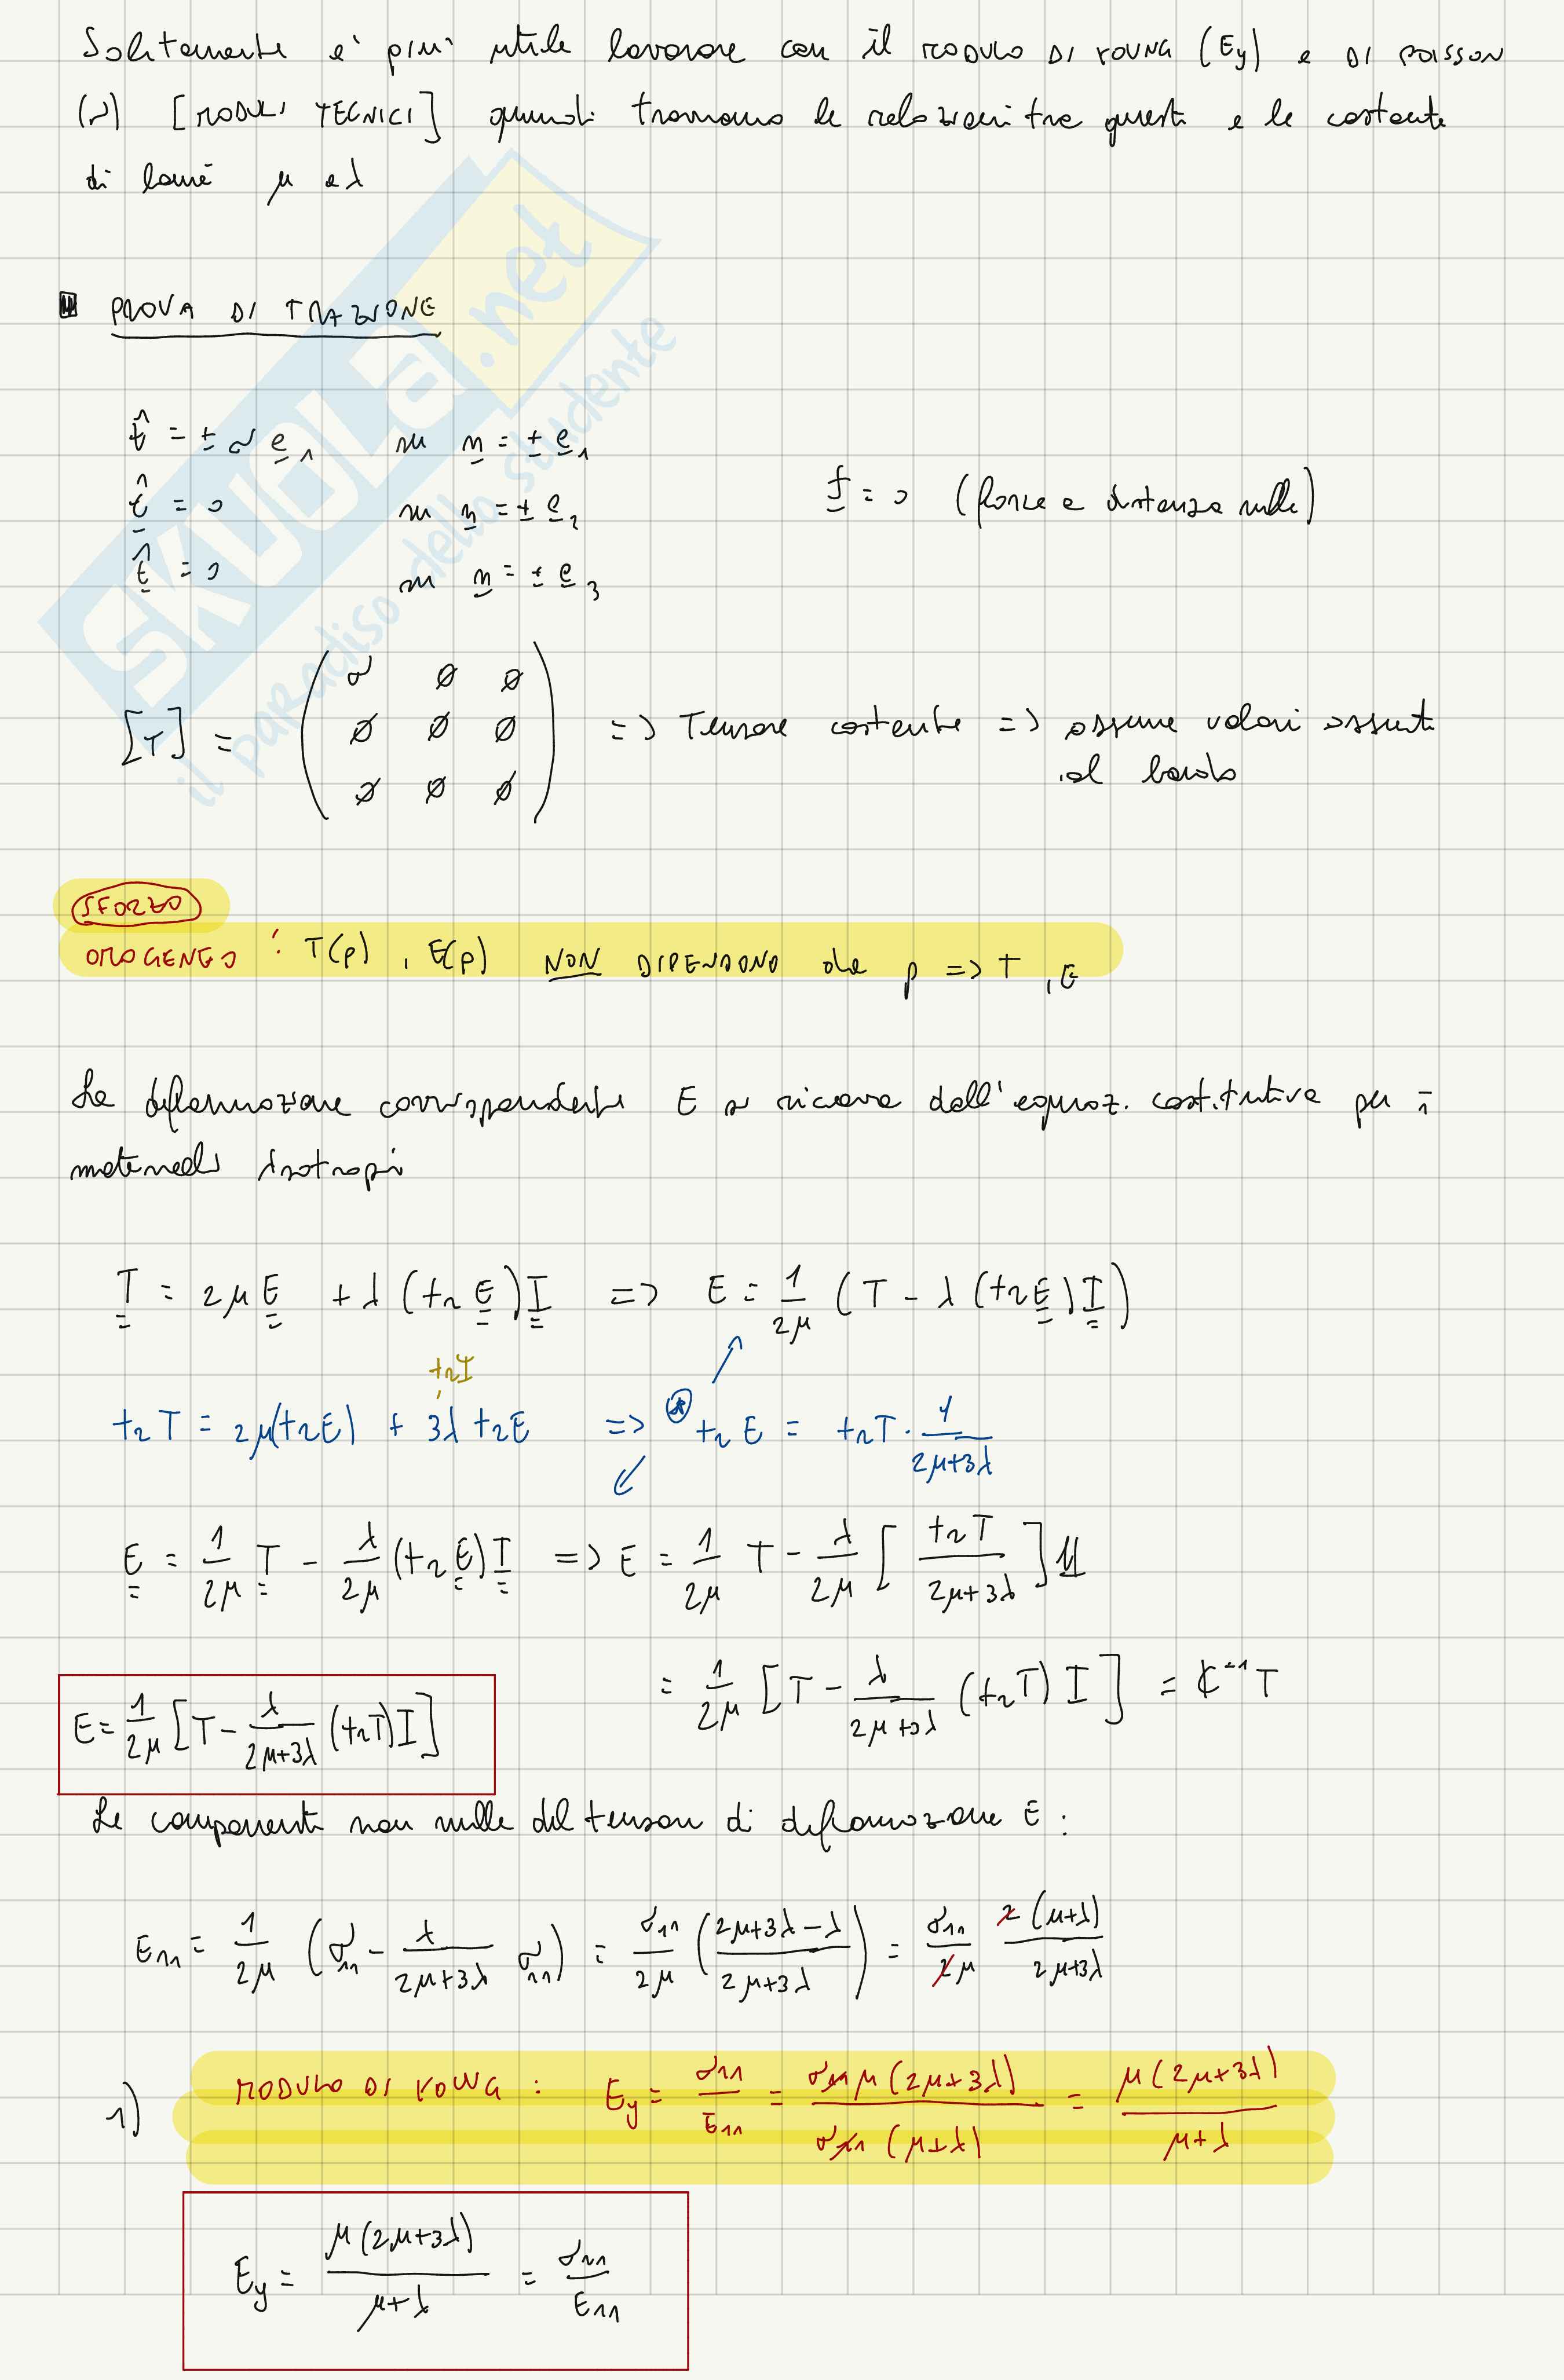 Solitamente e' più utile lavorare con il MODULO DI YOUNG (Ey) e DI POISSON
(ν) [MODULI TECNICI] quindi troviamo le relazioni tra questi e le costanti
di Lamé μ e λ
PROVA DI TRAZIONE
t̂ = ± σ e₁ su n = ± e₁
t̂ = 0 su n = ± e₂
f = 0 (forze a distanza nulle)
t̂ = 0 su n = ± e₃
[T] = ( σ ∅ ∅
∅ ∅ ∅
∅ ∅ ∅ ) => Tensore costante => assume valori assunti
al bordo
SFORZO
OMOGENEO : T(p), E(p) NON DIPENDONO da p => T, E
La deformazione corrispondente E si ricava dall'equaz. costitutiva per i
materiali isotropi
T = 2μE + λ(trE)I => E = 1/2μ (T - λ(trE)I)
trI
trT = 2μ(trE) + 3λ trE => ⊛ trE = trT · 1/(2μ+3λ)
E = 1/2μ T - λ/2μ (trE)I => E = 1/2μ T - λ/2μ [trT/(2μ+3λ)] 𝟙
= 1/2μ [T - λ/(2μ+3λ) (trT) I] = ℂ⁻¹T
E = 1/2μ [T - λ/(2μ+3λ) (trT)I]
Le componenti non nulle del tensore di deformazione E :
E₁₁ = 1/2μ (σ₁₁ - λ/(2μ+3λ) σ₁₁) = σ₁₁/2μ ((2μ+3λ-λ)/(2μ+3λ)) = σ₁₁/2μ 2(μ+λ)/(2μ+3λ)
1) MODULO DI YOUNG : Ey = σ₁₁/E₁₁ = σ₁₁μ(2μ+3λ)/σ₁₁(μ+λ) = μ(2μ+3λ)/(μ+λ)
Ey = μ(2μ+3λ)/(μ+λ) = σ₁₁/E₁₁
SKUOLA.net
il paradiso dello studente